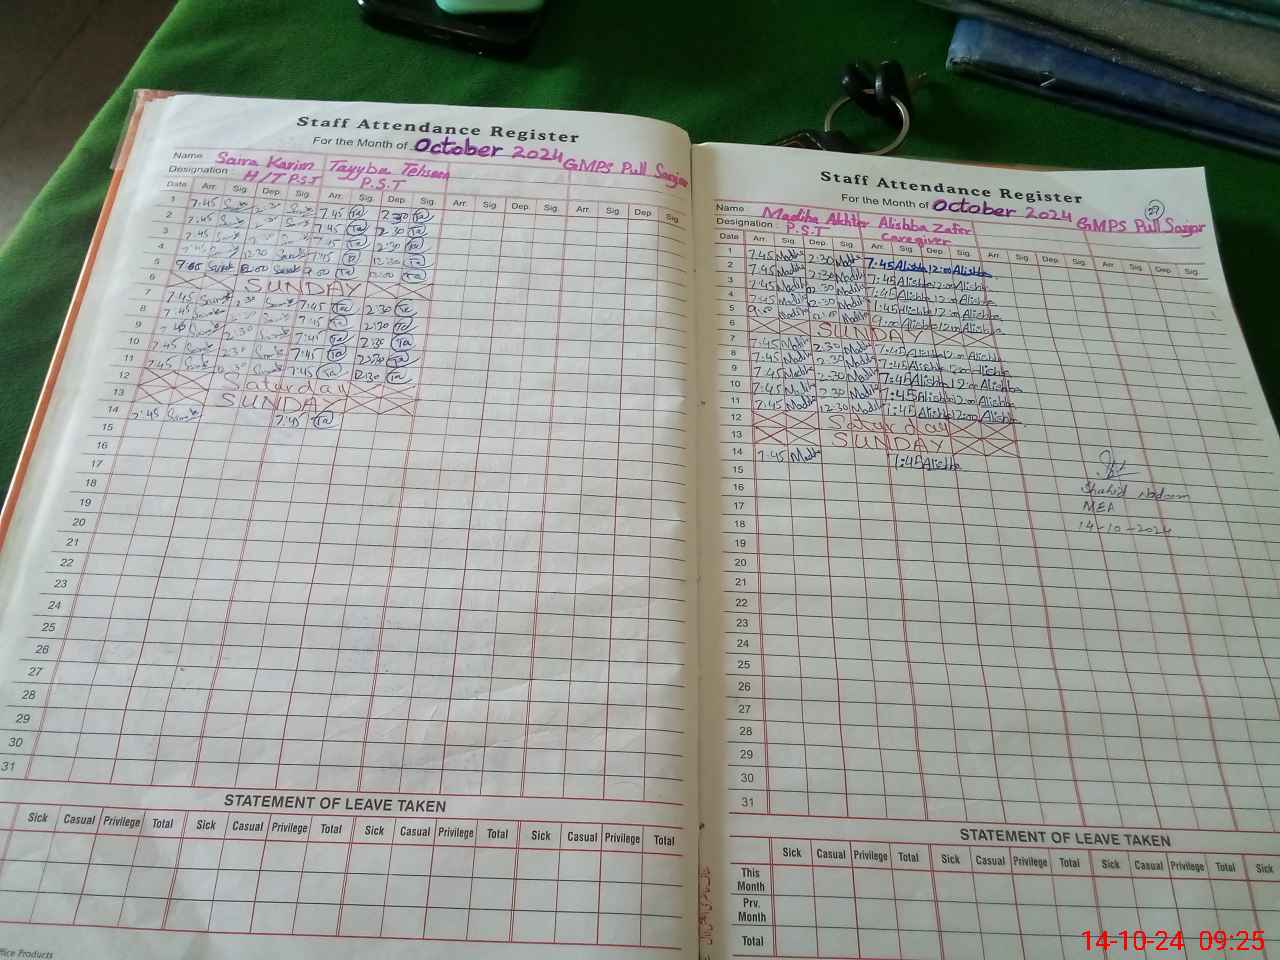 Staff Attendance Register
For the Month of October 2024 GMPS Pull Sanjar
Name Saira Karim Tayyba Tehseen
Designation H/T P.S.T P.S.T
Date Arr. Sig. Dep. Sig. Arr. Sig. Dep. Sig. Arr. Sig. Dep. Sig. Arr. Sig. Dep. Sig.
1 7:45 7:45 Ta 2:30 Ta
2 7:45 7:45 Ta 2:30 Ta
3 7:45 7:45 Ta 2:30 Ta
4 7:45 12:30 7:45 Ta 12:30 Ta
5 Ta 12:00 Ta
6 SUNDAY
7 7:45 2:30 7:45 Ta 2:30 Ta
8 7:45 7:45 Ta 2:30 Ta
9 7:45 2:30 7:45 Ta 2:30 Ta
10 7:45 2:30 7:45 Ta 2:30 Ta
11 7:45 12:30 7:45 Ta 12:30 Ta
12 Saturday
13 SUNDAY
14 7:45 7:45 Ta
15
16
17
18
19
20
21
22
23
24
25
26
27
28
29
30
31
STATEMENT OF LEAVE TAKEN
Sick Casual Privilege Total Sick Casual Privilege Total Sick Casual Privilege Total Sick Casual Privilege Total
ffice Products
Staff Attendance Register
27
For the Month of October 2024 GMPS Pull Sanjar
Name Madiha Akhter Alishba Zafar
Designation P.S.T Caregiver
Date Arr. Sig. Dep. Sig. Arr. Sig. Dep. Sig. Arr. Sig. Dep. Sig. Arr. Sig. Dep. Sig.
7:45 Madiha 2:30 Madiha 7:45 Alishba 12:00 Alishba
2 7:45 Madiha 2:30 Madiha 7:45 Alishba 12:00 Alishba
3 7:45 Madiha 2:30 Madiha 7:45 Alishba 12:00 Alishba
4 7:45 Madiha 12:30 Madiha 7:45 Alishba 12:00 Alishba
5 9:00 Madiha 12:00 Madiha 9:00 Alishba 12:00 Alishba
6 SUNDAY
7 7:45 Madiha 2:30 Madiha 7:45 Alishba 12:00 Alishba
8 7:45 Madiha 2:30 Madiha 7:45 Alishba 12:00 Alishba
9 7:45 Madiha 2:30 Madiha 7:45 Alishba 12:00 Alishba
10 7:45 Madiha 2:30 Madiha 7:45 Alishba 12:00 Alishba
11 7:45 Madiha 12:30 Madiha 7:45 Alishba 12:00 Alishba
12 Saturday
13 SUNDAY
14 7:45 Madiha 7:45 Alishba
15
16 Shahid Nadeem
17 MEA
18 14-10-2024
19
20
21
22
23
24
25
26
27
28
29
30
31
STATEMENT OF LEAVE TAKEN
Sick Casual Privilege Total Sick Casual Privilege Total Sick Casual Privilege Total Sick
This Month
Prv. Month
Total
14-10-24 09:25